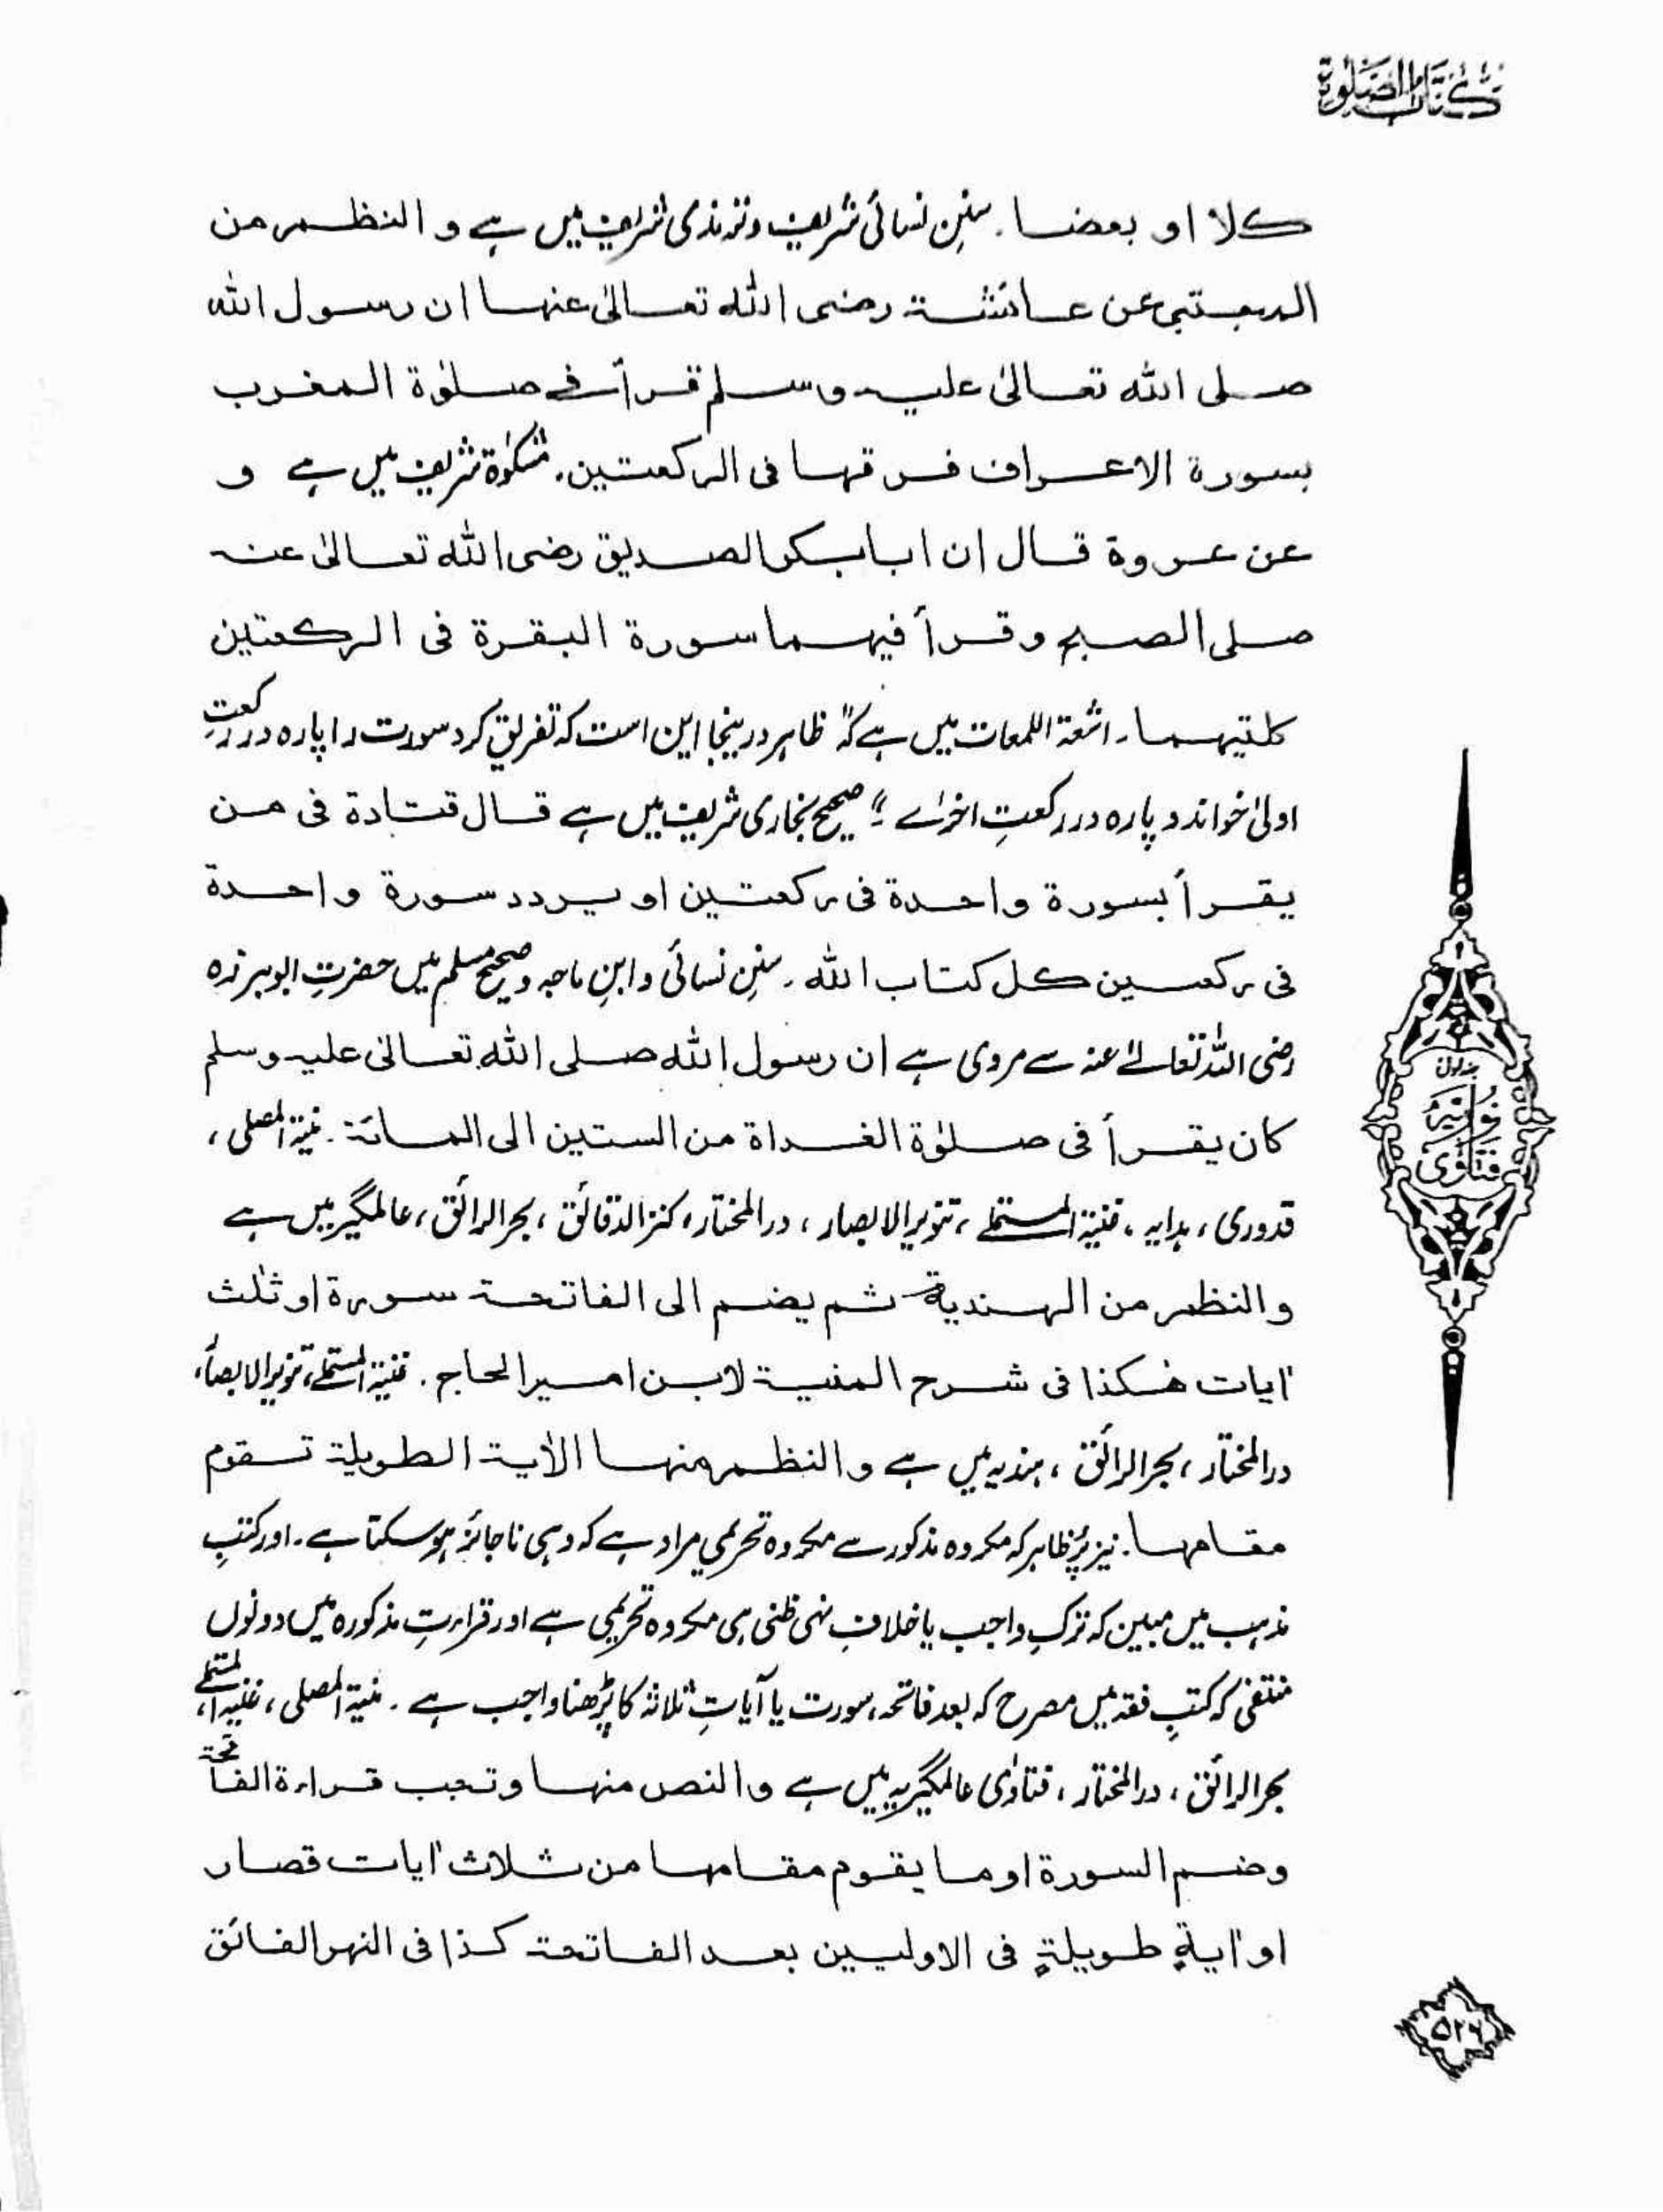 كتاب الصلوٰة
كلا او بعضا۔ سننِ نسائی شریف و ترمذی شریف میں ہے و النظم من
المجتبی عن عائشة رضی اللہ تعالیٰ عنہا ان رسول اللہ
صلی اللہ تعالیٰ علیہ وسلم قرأ فی صلوٰة المغرب
بسورة الاعراف فرقها فی الرکعتین۔ مشکوٰۃ شریف میں ہے و
عن عروة قال ان ابابکر الصدیق رضی اللہ تعالیٰ عنہ
صلی الصبح و قرأ فیهما سورة البقرة فی الرکعتین
کلتیهما۔ اشعۃ اللمعات میں ہے کہ "ظاہر درینجا این است کہ تفریق کرد سورت را پارہ در رکعتِ
اولیٰ خواند و پارہ در رکعتِ اخرٰے"۔ صحیح بخاری شریف میں ہے قال قتادة فی من
یقرأ بسورة واحدة فی رکعتین او یردد سورة واحدة
فی رکعتین کل کتاب اللہ۔ سننِ نسائی و ابنِ ماجہ و صحیح مسلم میں حضرتِ ابو برزہ
رضی اللہ تعالےٰ عنہ سے مروی ہے ان رسول اللہ صلی اللہ تعالیٰ علیہ وسلم
کان یقرأ فی صلوٰة الغداة من الستین الی المائة۔ منیۃ المصلی،
قدوری، ہدایہ، غنیۃ المستملے، تنویر الابصار، در المختار، کنز الدقائق، بحر الرائق، عالمگیر میں ہے
والنظم من الهندیة ثم یضم الی الفاتحة سورة او ثلٰث
اٰیات هٰکذا فی شرح المنیة لابن امیر الحاج۔ غنیۃ المستملے، تنویر الابصار،
در المختار، بحر الرائق، ہندیہ میں ہے والنظم منها الاٰیة الطویلة تقوم
مقامها۔ نیز پُر ظاہر کہ مکروہ مذکور سے مکروہ تحریمی مراد ہے کہ وہی ناجائز ہو سکتا ہے۔ اور کتبِ
مذہب میں مبین کہ ترکِ واجب یا خلافِ نہی ظنی ہی مکروہ تحریمی ہے اور قراءتِ مذکورہ میں دونوں
منتفی کہ کتبِ فقہ میں مصرح کہ بعد فاتحہ، سورت یا آیاتِ ثلاثہ کا پڑھنا واجب ہے۔ منیۃ المصلی، غنیۃ المستملے،
بحر الرائق، در المختار، فتاوٰی عالمگیریہ میں ہے والنص منها وتجب قراءة الفاتحة
وضم السورة او ما یقوم مقامها من ثلاث اٰیات قصار
او اٰیةٍ طویلةٍ فی الاولیین بعد الفاتحة کذا فی النهر الفائق
فتاوی نوریہ
۵۲۶